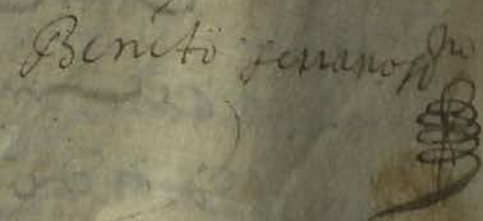 Benito serrano